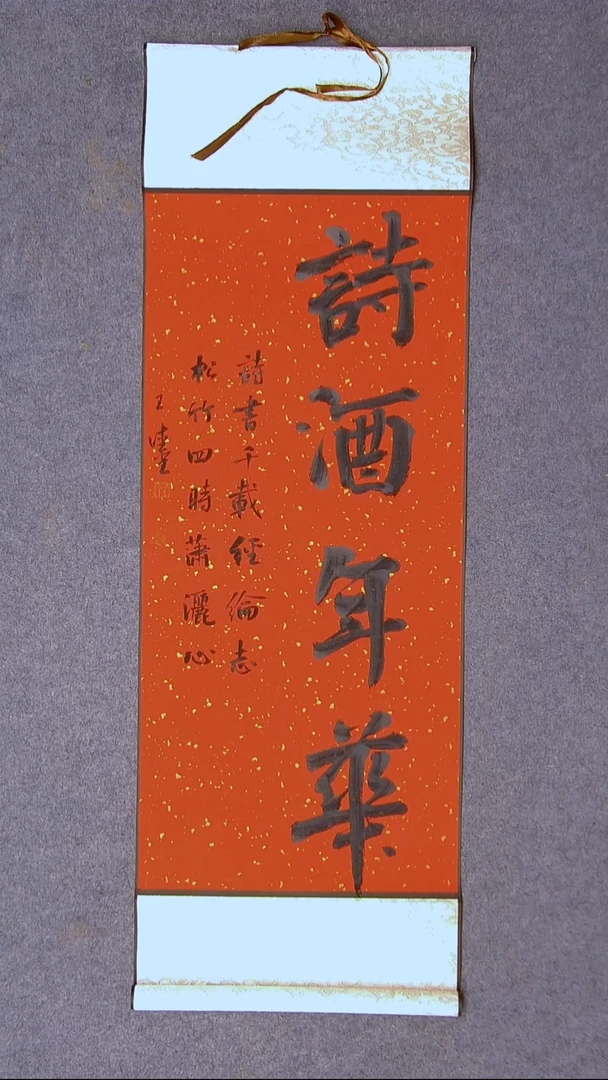 詩酒年華
詩書千載經綸志
松竹四時蕭灑心